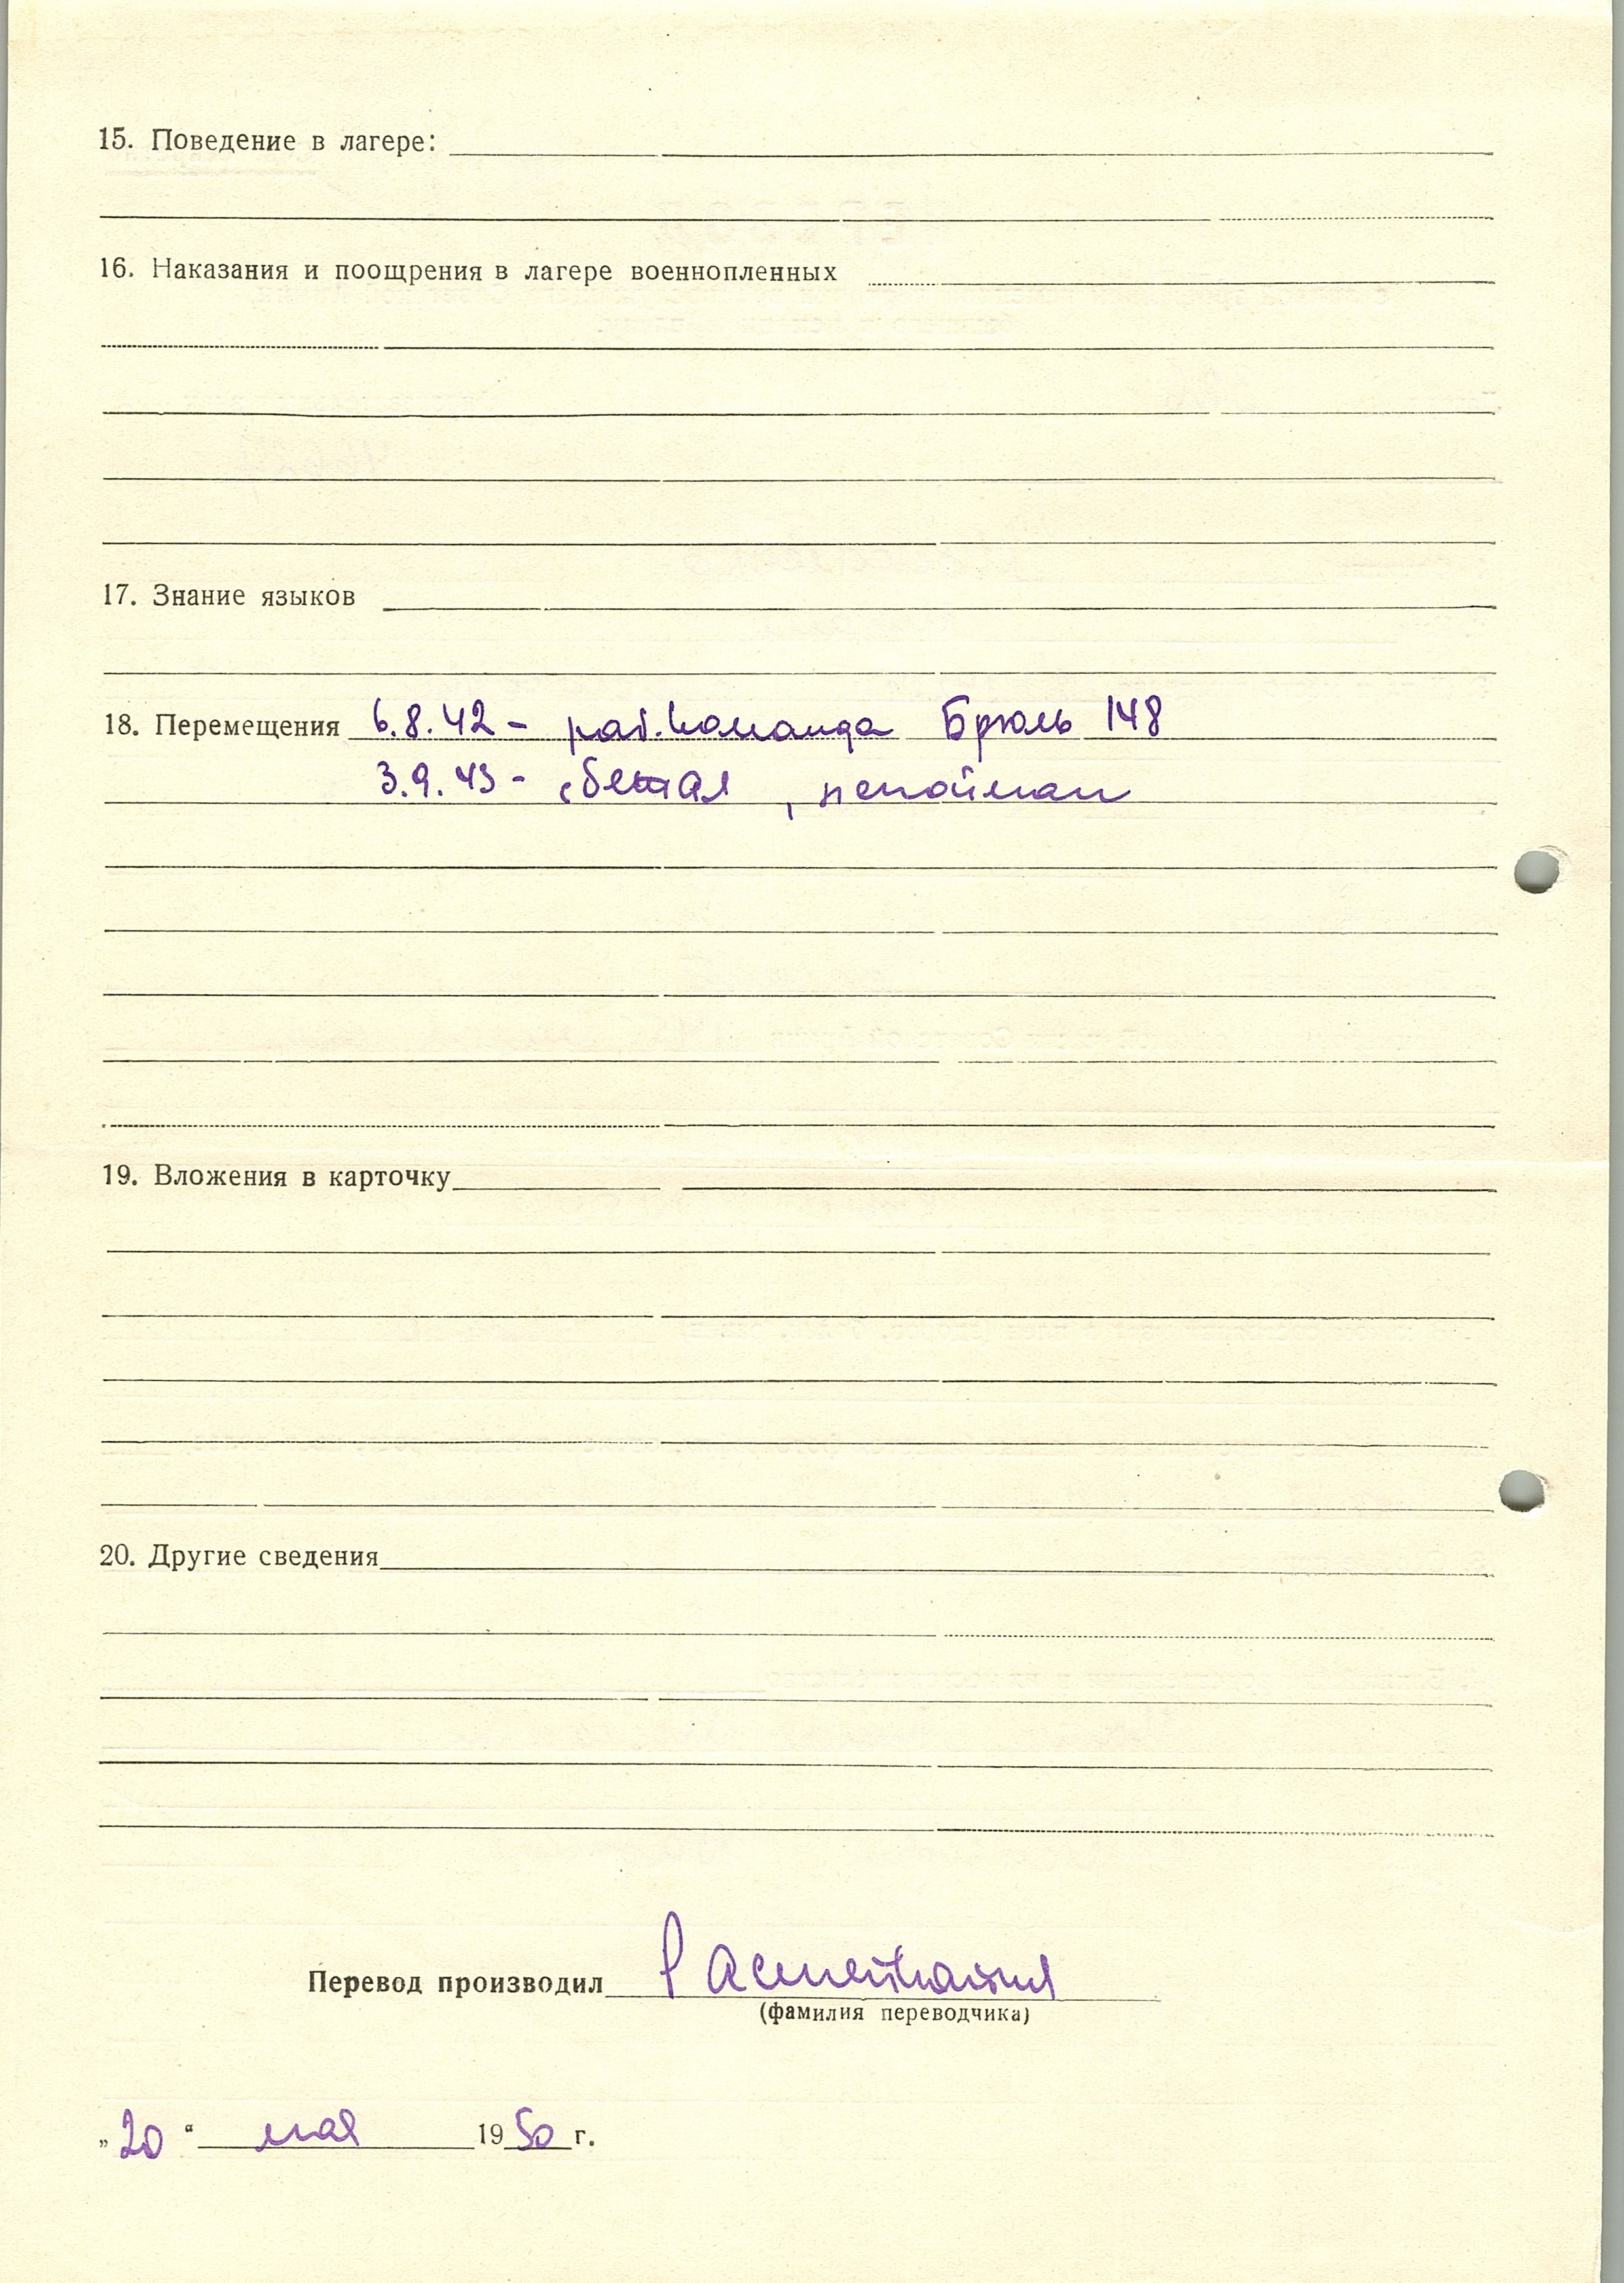 15. Поведение в лагере:
16. Наказания и поощрения в лагере военнопленных
17. Знание языков
18. Перемещения 6.8.42 - раб. команда Брюль 148
3.9.43 - сбежал, непойман
19. Вложения в карточку
20. Другие сведения
Перевод производил
(фамилия переводчика)
„20“ мая 1950 г.